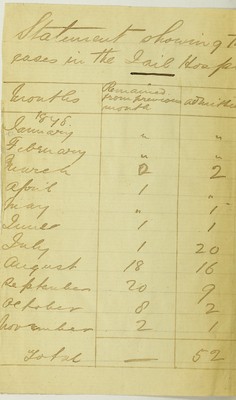 Statement showing t
cases in the Jail Hosp
Months Remained from previous month admitted
1945.
January " "
February " "
March 2 2
April 1 "
May " 1
June 1 1
July 1 20
August 18 16
September 20 9
October 8 2
November 2 1
Total — 52